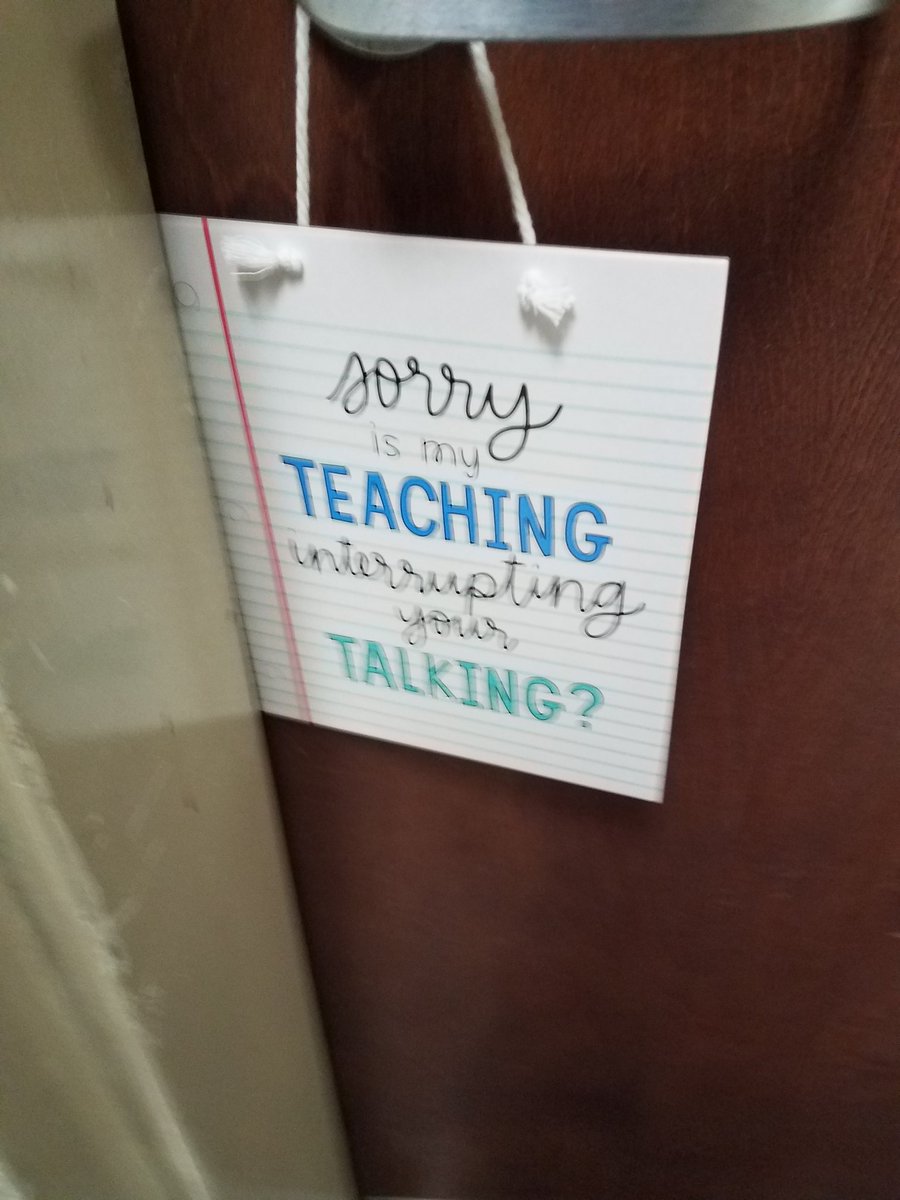 sorry
is my
TEACHING
interrupting
your
TALKING?